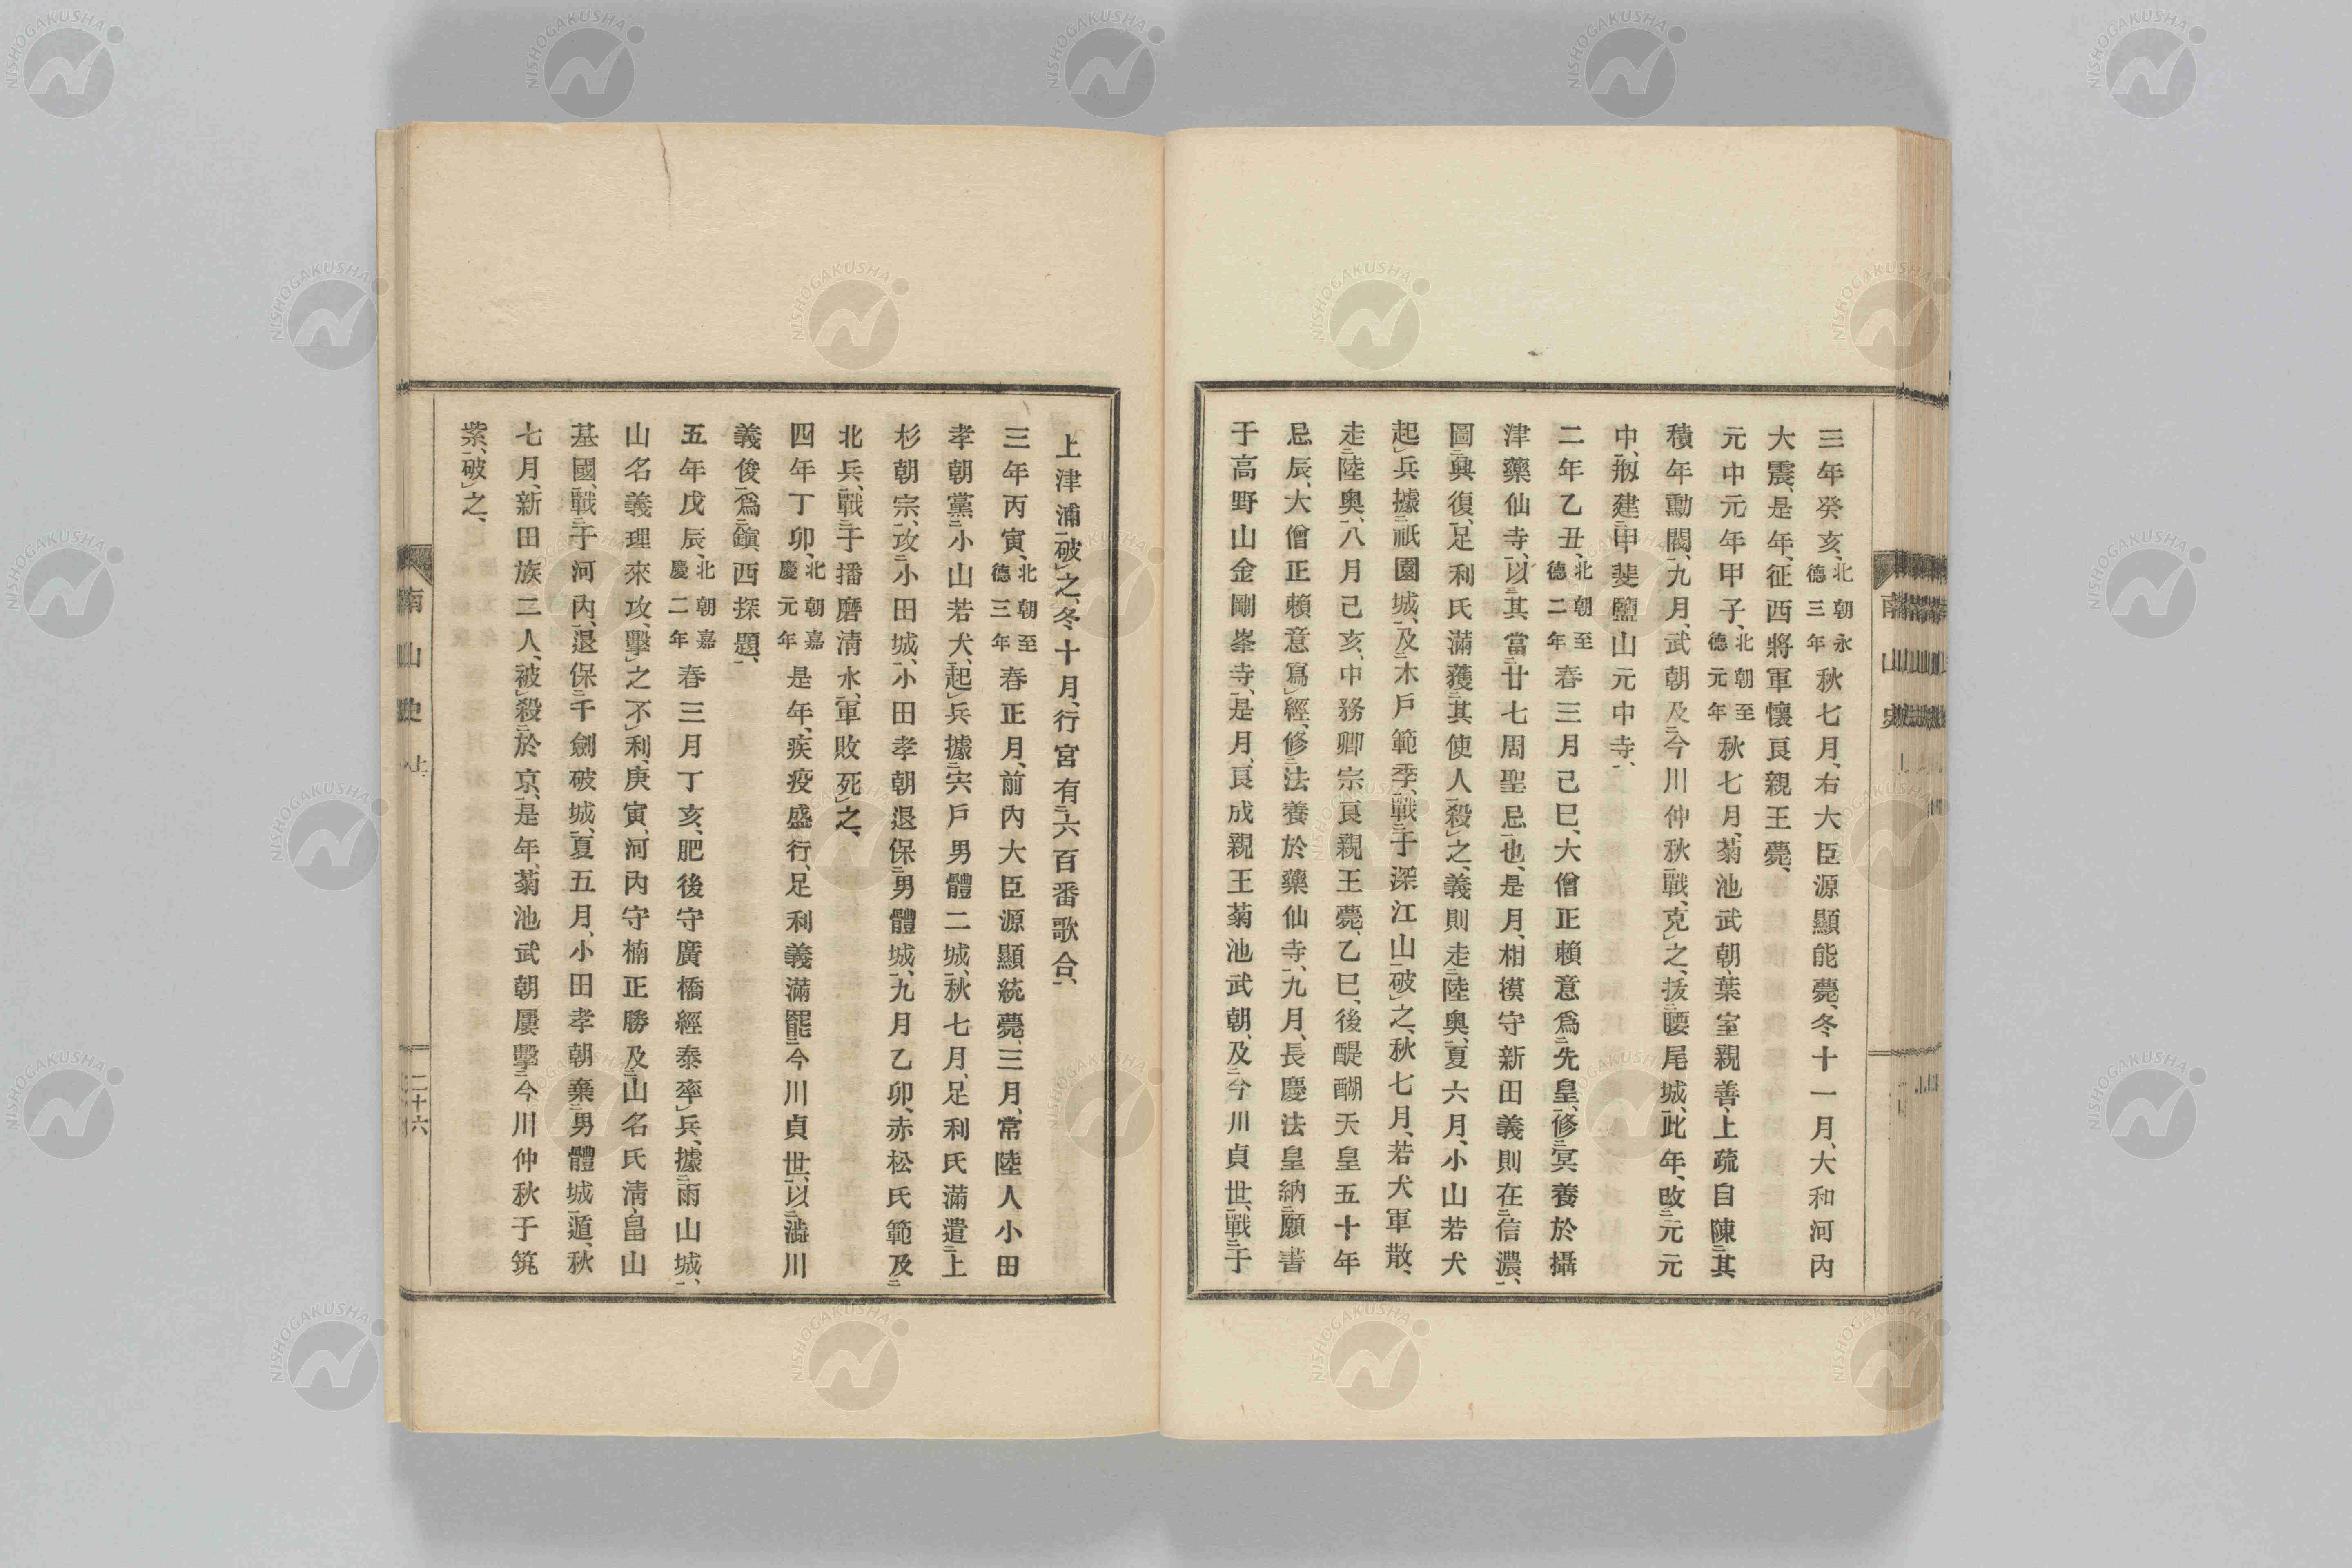 三年癸亥、北朝永德三年秋七月、右大臣源顯能薨、冬十一月、大和河內
大震、是年、征西將軍懷良親王薨、
元中元年甲子、北朝至德元年秋七月、菊池武朝、葉室親善、上疏自陳二其
積年勳閥一、九月、武朝及二今川仲秋一戰、克レ之、拔二腰尾城一、此年、改二元元
中一、剏二建甲斐鹽山元中寺一、
二年乙丑、北朝至德二年春三月己巳、大僧正賴意爲二先皇一、修二冥養於攝
津藥仙寺一、以三其當二廿七周聖忌一也、是月、相摸守新田義則在二信濃一、
圖二興復一、足利氏滿獲二其使人一殺レ之、義則走二陸奧一、夏六月、小山若犬
起レ兵據二祇園城一、及二木戶範季一、戰二于深江山一破レ之、秋七月、若犬軍散、
走二陸奧一、八月己亥、中務卿宗良親王薨、乙巳、後醍醐天皇五十年
忌辰、大僧正賴意寫レ經、修二法養於藥仙寺一、九月、長慶法皇納二願書
于高野山金剛峯寺一、是月、良成親王菊池武朝、及二今川貞世一、戰二于
上津浦一破レ之、冬十月、行宮有二六百番歌合一、
三年丙寅、北朝至德三年春正月、前內大臣源顯統薨、三月、常陸人小田
孝朝黨二小山若犬一、起レ兵據二宍戶男體二城一、秋七月、足利氏滿遣二上
杉朝宗一、攻二小田城一、小田孝朝退保二男體城一、九月乙卯、赤松氏範及二
北兵一、戰二于播磨淸水一、軍敗死レ之、
四年丁卯、北朝嘉慶元年是年、疾疫盛行、足利義滿罷二今川貞世一、以二澁川
義俊一爲二鎭西探題一、
五年戊辰、北朝嘉慶二年春三月丁亥、肥後守廣橋經泰率レ兵、據二雨山城一、
山名義理來攻、擊レ之不レ利、庚寅、河內守楠正勝及二山名氏淸畠山
基國一、戰二于河內一、退保二千劍破城一、夏五月、小田孝朝棄二男體城一遁、秋
七月、新田族二人、被レ殺二於京一、是年、菊池武朝屢擊二今川仲秋于筑
紫一、破レ之、
南山史
二十六